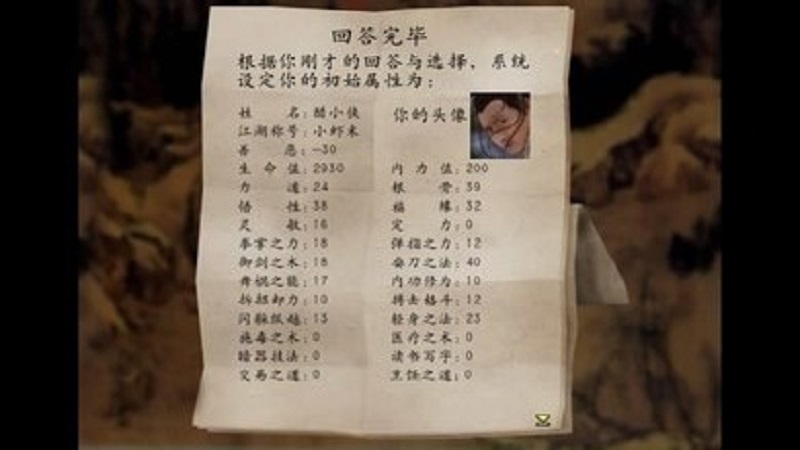 回答完毕
根据你刚才的回答与选择，系统
设定你的初始属性为：
姓 名：醋小侠 你的头像
江湖称号：小虾米
善 恶：-30
生 命 值：2930 内 力 值：200
力 道：24 根 骨：39
悟 性：38 福 缘：32
灵 敏：16 定 力：0
拳掌之力：18 弹指之力：12
御剑之术：18 耍刀之法：40
舞棍之能：17 内功修为：10
拆招卸力：10 搏击格斗：12
闪躲纵越：13 轻身之法：23
施毒之术：0 医疗之术：0
暗器技法：0 读书写字：0
交易之道：0 烹饪之道：0